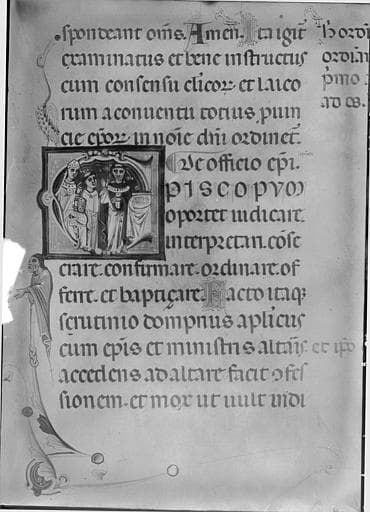 spondeant om̄s. Amen. Ita igit̄
examinatus et bene instructus
cum consensu cl̄icoꝝ et laico
rum a conuentu totius ꝓuin
cie ep̄oꝝ in no̅ie dn̄i ordinet᷑.
De officio ep̄i.
PISCOPVM
oportet iudicare.
interpretari. cōse
crare. confirmare. ordinare. of
ferre. et bapticare. Facto itaq;
scrutinio dompnus ap̄licus
cum ep̄is et ministris altaris
accedens ad altare facit ꝯfes
sionem. et mox ut uult indi
ordinar
primo
ad es.
et ip̄o